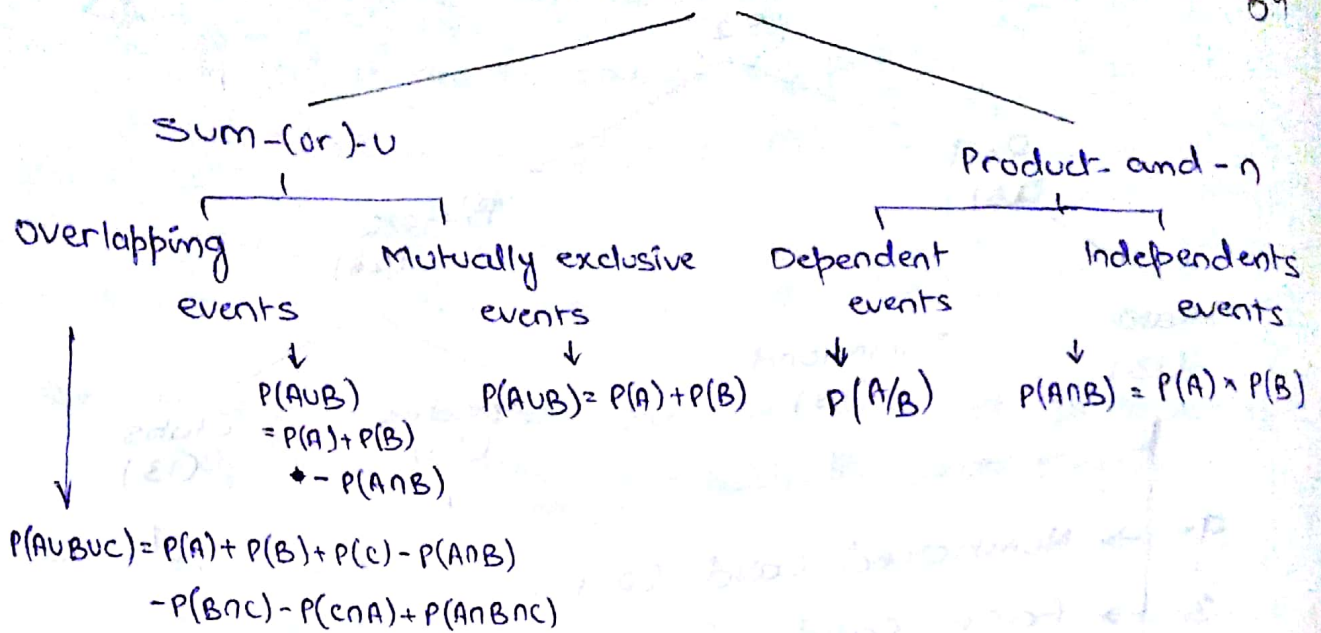 Sum-(or)-∪
Product- and - ∩
Overlapping events
Mutually exclusive events
Dependent events
Independents events
↓
P(A∪B)
= P(A)+ P(B)
- P(A∩B)
↓
P(A∪B)= P(A)+P(B)
↓
P(A/B)
↓
P(A∩B) = P(A) × P(B)
P(A∪B∪C)= P(A)+ P(B)+ P(C) - P(A∩B)
-P(B∩C)- P(C∩A)+ P(A∩B∩C)